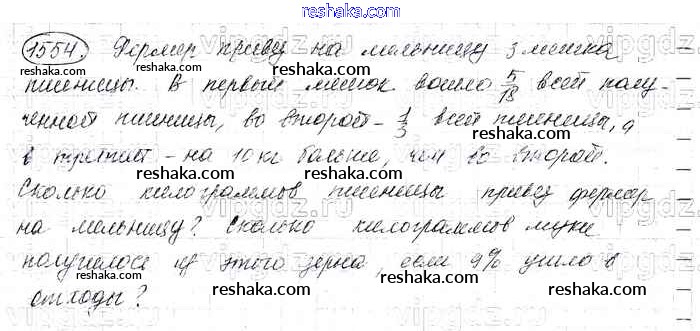 reshaka.com
1554. Фермер привёз на мельницу 3 мешка
reshaka.com reshaka.com reshaka.com
пшеницы. В первый мешок вошло 5/13 всей полу-
ченной пшеницы, во второй - 1/3 всей пшеницы, а
reshaka.com reshaka.com reshaka.com
в третий - на 10 кг больше, чем во второй.
Сколько килограммов пшеницы привёз фермер
reshaka.com reshaka.com reshaka.com
на мельницу? Сколько килограммов муки
vipgdz.ru vipgdz
получилось из этого зерна, если 9% ушло в
reshaka.com reshaka.com reshaka.com
отходы?